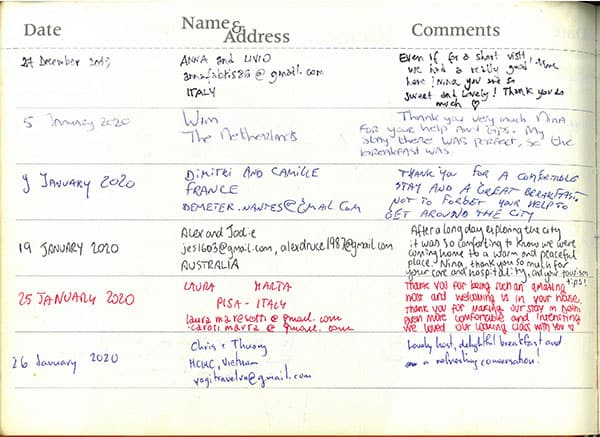 Date
Name & Address
Comments
27 December 2019
ANNA and LIVIO
annafabris86@gmail.com
ITALY
Even if for a short visit,
we had a really good time
here! Nina you are so
sweet and lovely! Thank you so
much ♡
5 January 2020
Wim
The Netherlands
Thank you very much Nina
for your help and tips. My
stay there was perfect, so the
breakfast was.
9 January 2020
DIMITRI AND CAMILLE
FRANCE
DEMETER.NANTES@GMAIL.COM
THANK YOU FOR A COMFORTABLE
STAY AND A GREAT BREAKFAST.
NOT TO FORGET YOUR HELP TO
GET AROUND THE CITY
19 JANUARY 2020
Alex and Jodie
jes1603@gmail.com, alexdruce1987@gmail.com
AUSTRALIA
After a long day exploring the city
it was so comforting to know we were
coming home to a warm and peaceful
place. Nina, thank you so much for
your care and hospitality, and your tourism
tips!
25 JANUARY 2020
LAURA MARTA
PISA - ITALY
laura @gmail.com
carosi marta @gmail.com
Thank you for being such an amazing
host and welcoming us in your house,
thank you for making our stay in
even more comfortable and interesting
We loved our cooking class with you ♡
26 January 2020
Chris & Thuong
HCMC, Vietnam
yogitravelvn@gmail.com
Lovely host, delightful breakfast and
a refreshing conversation!